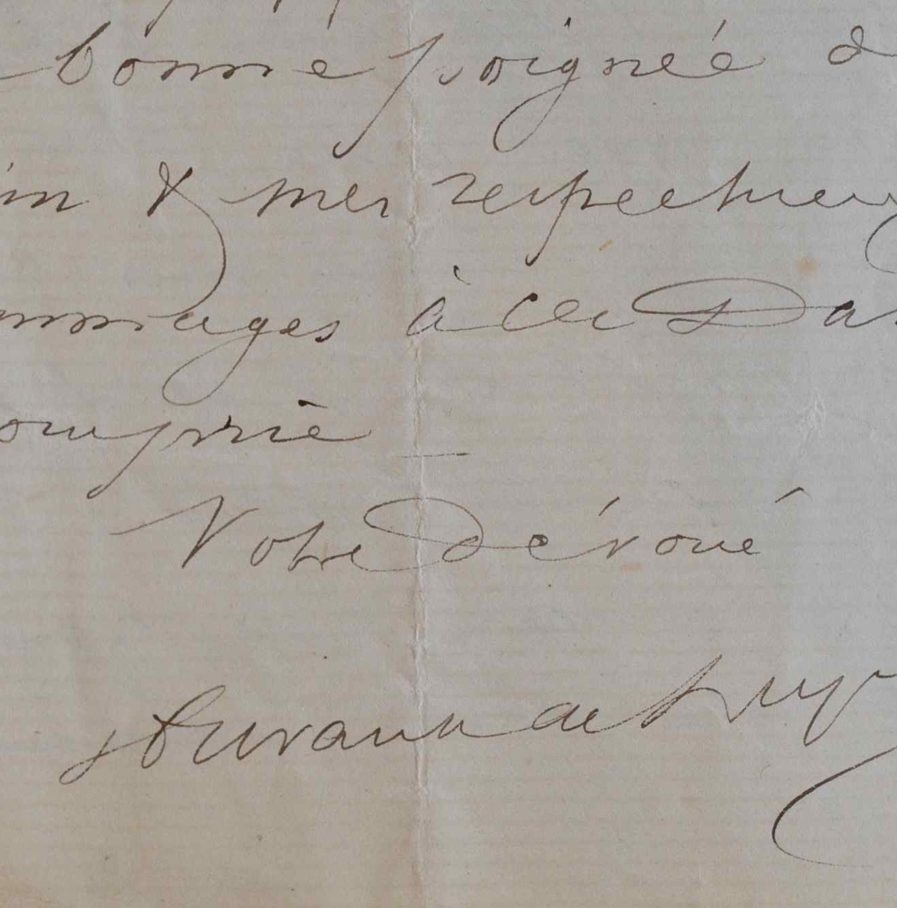 bonne poignée d
in & mes respectueux
ommages à ces Da
omprie
Votre dévoué